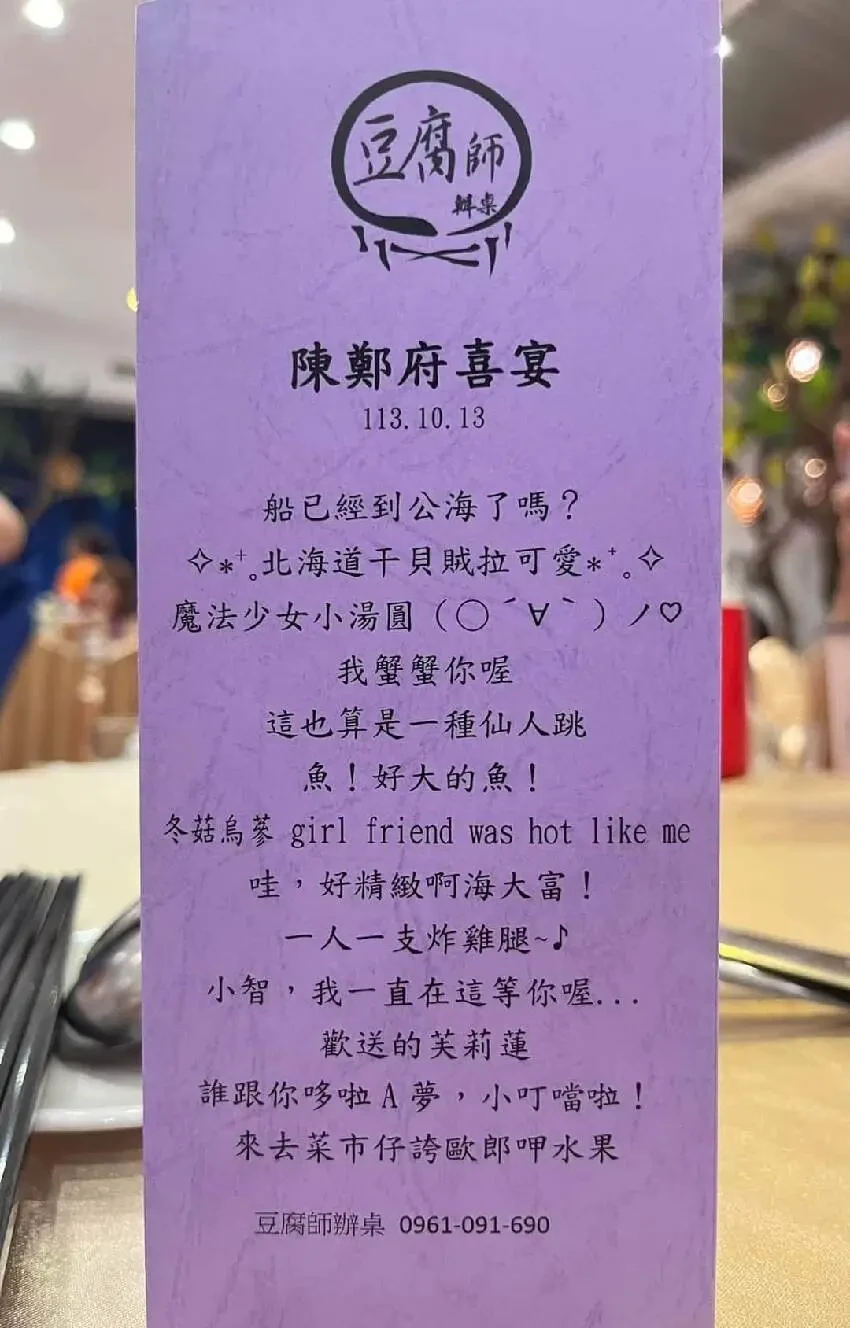 豆腐師
辦桌
陳鄭府喜宴
113.10.13
船已經到公海了嗎？
✧*⁺˳北海道干貝賊拉可愛*⁺˳✧
魔法少女小湯圓（◯´∀｀）ノ♡
我蟹蟹你喔
這也算是一種仙人跳
魚！好大的魚！
冬菇烏蔘 girl friend was hot like me
哇，好精緻啊海大富！
一人一支炸雞腿~♪
小智，我一直在這等你喔...
歡送的芙莉蓮
誰跟你哆啦A夢，小叮噹啦！
來去菜市仔誇歐郎呷水果
豆腐師辦桌 0961-091-690